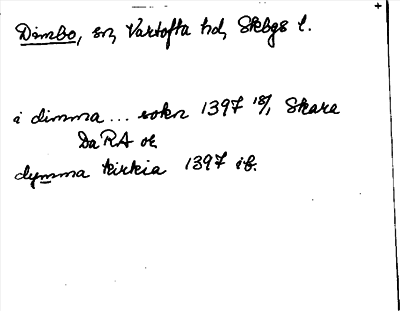 Dimbo, sn, Vartofta hd, Skbgs l.
i dimma ... sokn 1397 18/1 Skara
DaRA or
dymma kirkia 1397 ib.